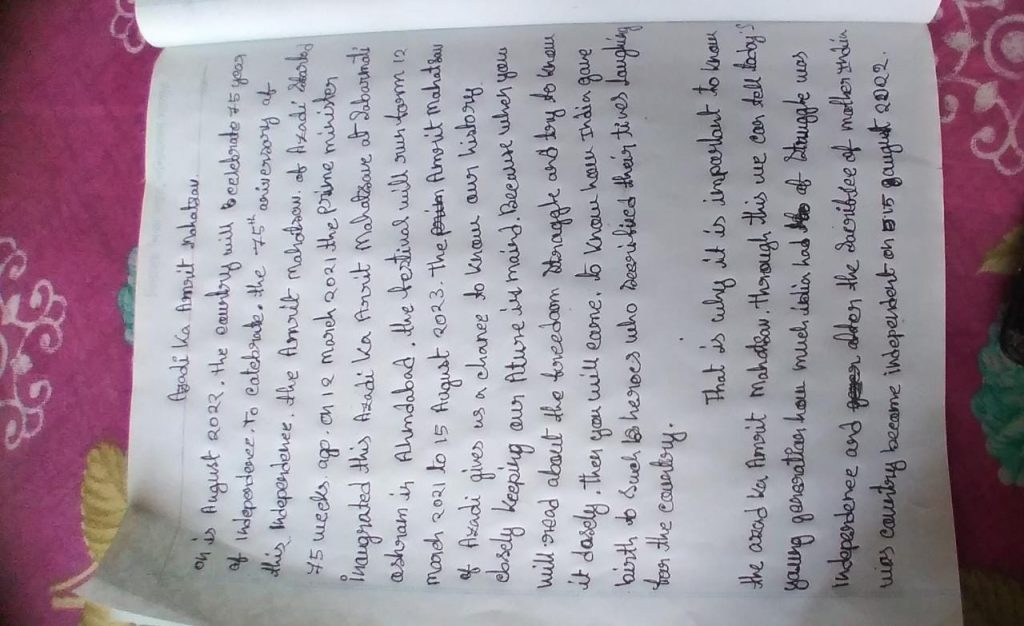 Azadi Ka Amrit Mahatsav.
on is August 2022. the country will celebrate 75 year
of Independence. to calebrate the 75th aniversory of
this Independence. the Amrit Mahotsav. of Azadi Started
75 weeks. ago. on 12 march 2021 the prime minister
inugrated this Azadi Ka Amrit Mahatsave at Sabarmati
ashram in Ahmdabad. the festival will run form 12
march 2021 to 15 August 2023. The Amrit Mahatsav
of Azadi gives us a chance to know our history
closely keeping our Ature in maind. Because when you
will read about the foreedom Straggle and try to know
it closely. then you will come. to know how India gave
birth to Such heroes who Sacrificed their lives laughing
for the country.
That is why it is important to know
the azad ka Amrit Mahatsav. through this we can tell today's
young generation how much India had of Struggle was
Independence and after the Sacribee of mother india
was country become independent on 15 august 2022.